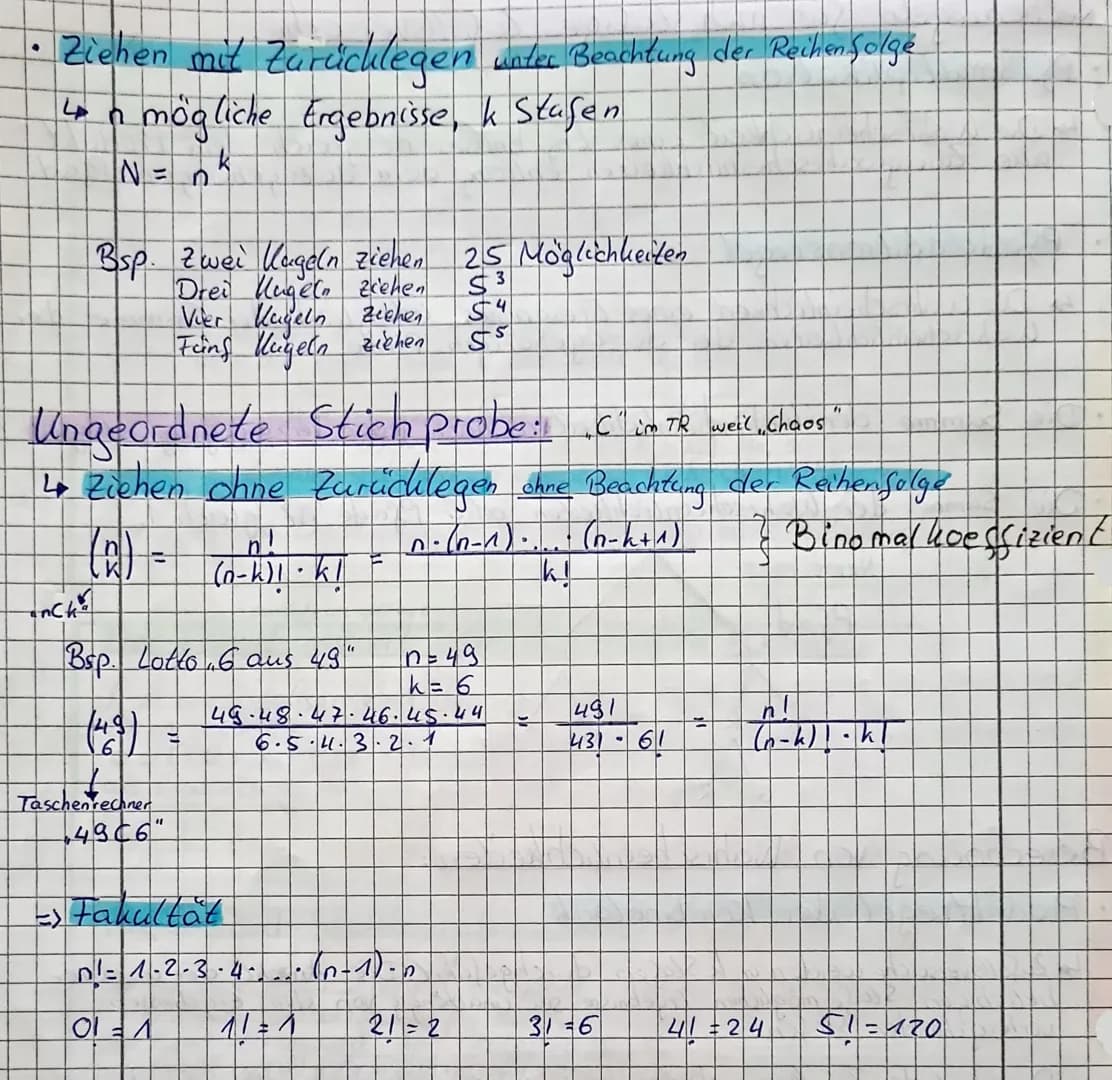 • Ziehen mit Zurücklegen unter Beachtung der Reihenfolge
↳ n mögliche Ergebnisse, k Stufen
N = n^k
Bsp. Zwei Kugeln ziehen 25 Möglichkeiten
Drei Kugeln ziehen 5^3
Vier Kugeln ziehen 5^4
Fünf Kugeln ziehen 5^5
Ungeordnete Stichprobe: „C" im TR weil „Chaos"
↳ Ziehen ohne Zurücklegen ohne Beachtung der Reihenfolge
(n k) = n! / ((n-k)! · k!) = n·(n-1)·...·(n-k+1) / k! } Binomalkoeffizient
„nCk"
Bsp. Lotto „6 aus 49" n=49
k=6
(49 6) = 49·48·47·46·45·44 / 6·5·4·3·2·1 = 49! / 43! · 6! = n! / (n-k)! · k!
↓
Taschenrechner
„49C6"
=> Fakultät
n! = 1·2·3·4·...·(n-1)·n
0! = 1 1! = 1 2! = 2 3! = 6 4! = 24 5! = 120